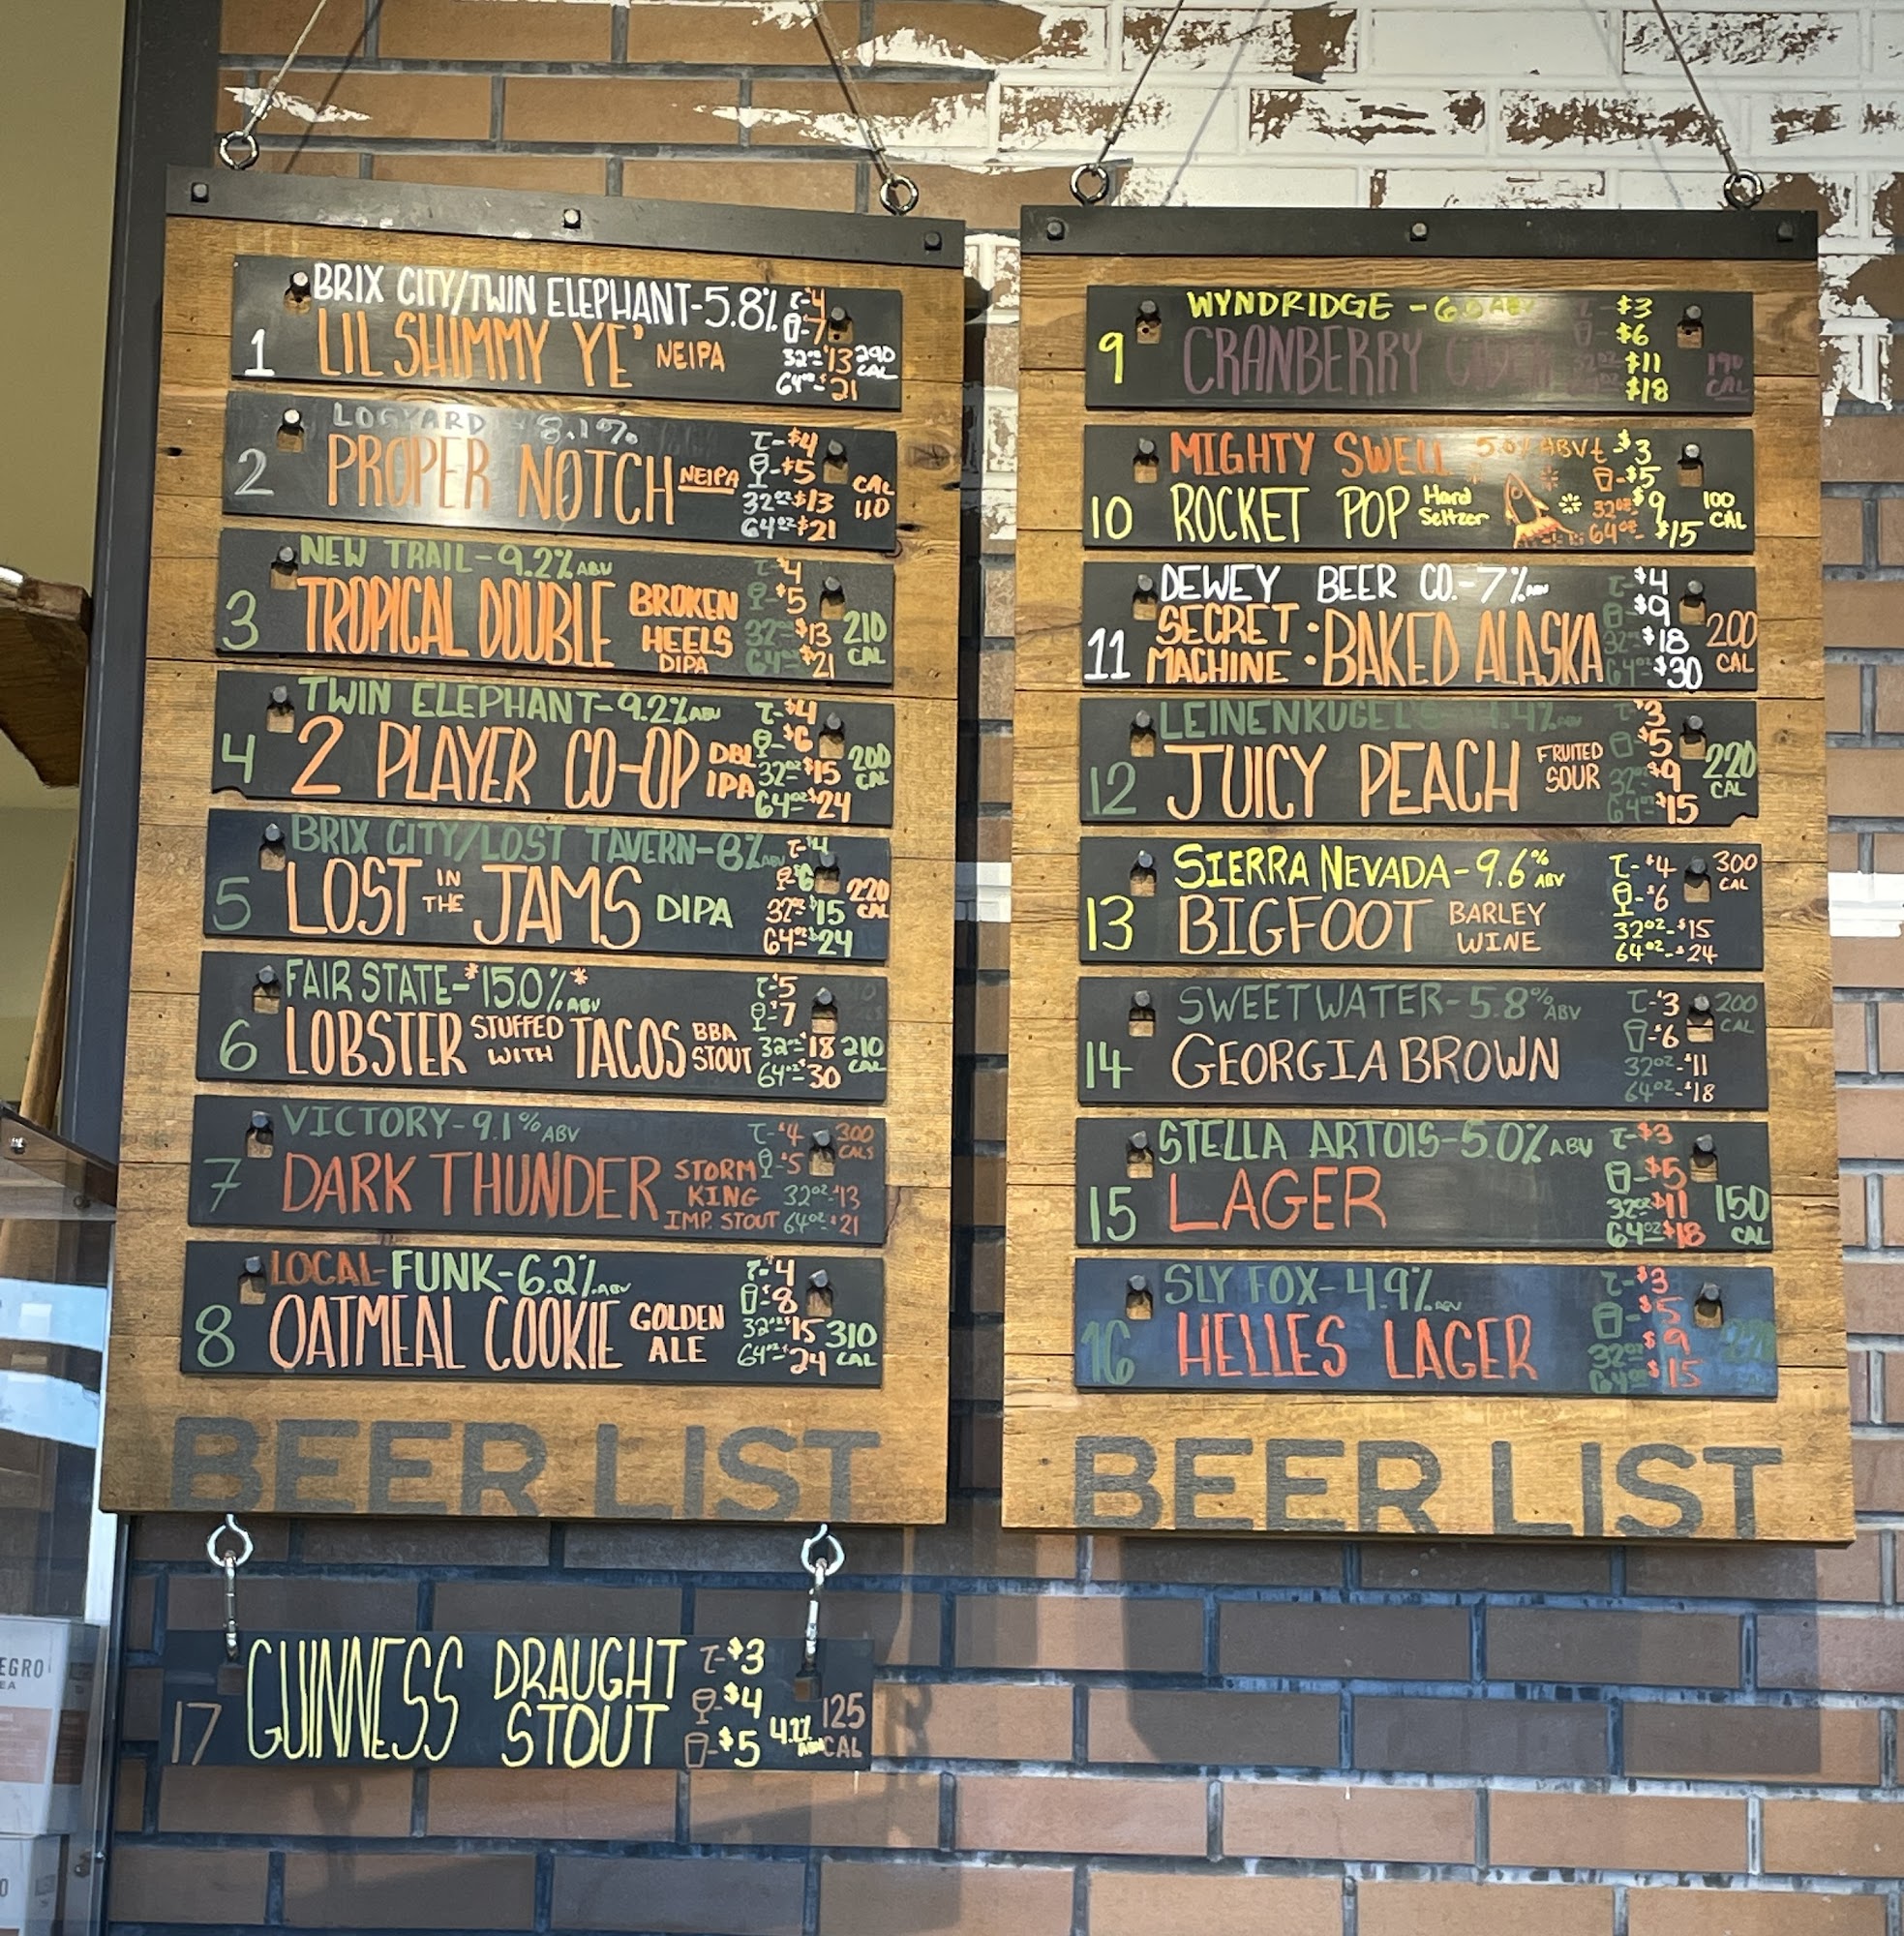 BRIX CITY/TWIN ELEPHANT-5.8%
1 LIL SHIMMY YE' NEIPA
T-$4
-7
32oz-$13 290 CAL
64oz-$21
LOGYARD - 8.1%
2 PROPER NOTCH NEIPA
T-$4
-$5
32oz-$13 CAL 110
64oz-$21
NEW TRAIL-9.2% ABV
3 TROPICAL DOUBLE BROKEN HEELS DIPA
T-$4
-$5
32oz-$13 210 CAL
64oz-$21
TWIN ELEPHANT-9.2% ABV
4 2 PLAYER CO-OP DBL IPA
T-$4
-$6
32oz-$15 200 CAL
64oz-$24
BRIX CITY/LOST TAVERN-8% ABV
5 LOST IN THE JAMS DIPA
T-$4
-$6
32oz-$15 220 CAL
64oz-$24
FAIR STATE-*15.0%* ABV
6 LOBSTER STUFFED WITH TACOS BBA STOUT
T-$5
-$7
32oz-$18 210 CAL
64oz-$30
VICTORY-9.1% ABV
7 DARK THUNDER STORM KING IMP. STOUT
T-$4 300 CALS
-$5
32oz-$13
64oz-$21
LOCAL-FUNK-6.2% ABV
8 OATMEAL COOKIE GOLDEN ALE
T-$4
-$8
32oz-$15 310 CAL
64oz-$24
BEER LIST
GUINNESS DRAUGHT STOUT
17
T-$3
-$4
-$5 4.2% ABV 125 CAL
WYNDRIDGE - ABV
9 CRANBERRY CIDER
$3
$6
$11 190 CAL
$18
MIGHTY SWELL 5.0% ABV
10 ROCKET POP Hard Seltzer
t-$3
-$5
32oz-$9 100 CAL
64oz-$15
DEWEY BEER CO.-7% ABV
11 SECRET MACHINE: BAKED ALASKA
T-$4
-$9
32oz-$18 200 CAL
64oz-$30
LEINENKUGEL'S- ABV
12 JUICY PEACH FRUITED SOUR
T-$3
-$5
32oz-$9 220 CAL
64oz-$15
SIERRA NEVADA-9.6% ABV
13 BIGFOOT BARLEY WINE
T-$4 300 CAL
-$6
32oz-$15
64oz-$24
SWEETWATER-5.8% ABV
14 GEORGIA BROWN
T-$3 200 CAL
-$6
32oz-$11
64oz-$18
STELLA ARTOIS-5.0% ABV
15 LAGER
T-$3
-$5
32oz-$11 150 CAL
64oz-$18
SLY FOX-4.9% ABV
16 HELLES LAGER
T-$3
-$5
32oz-$9
64oz-$15
BEER LIST